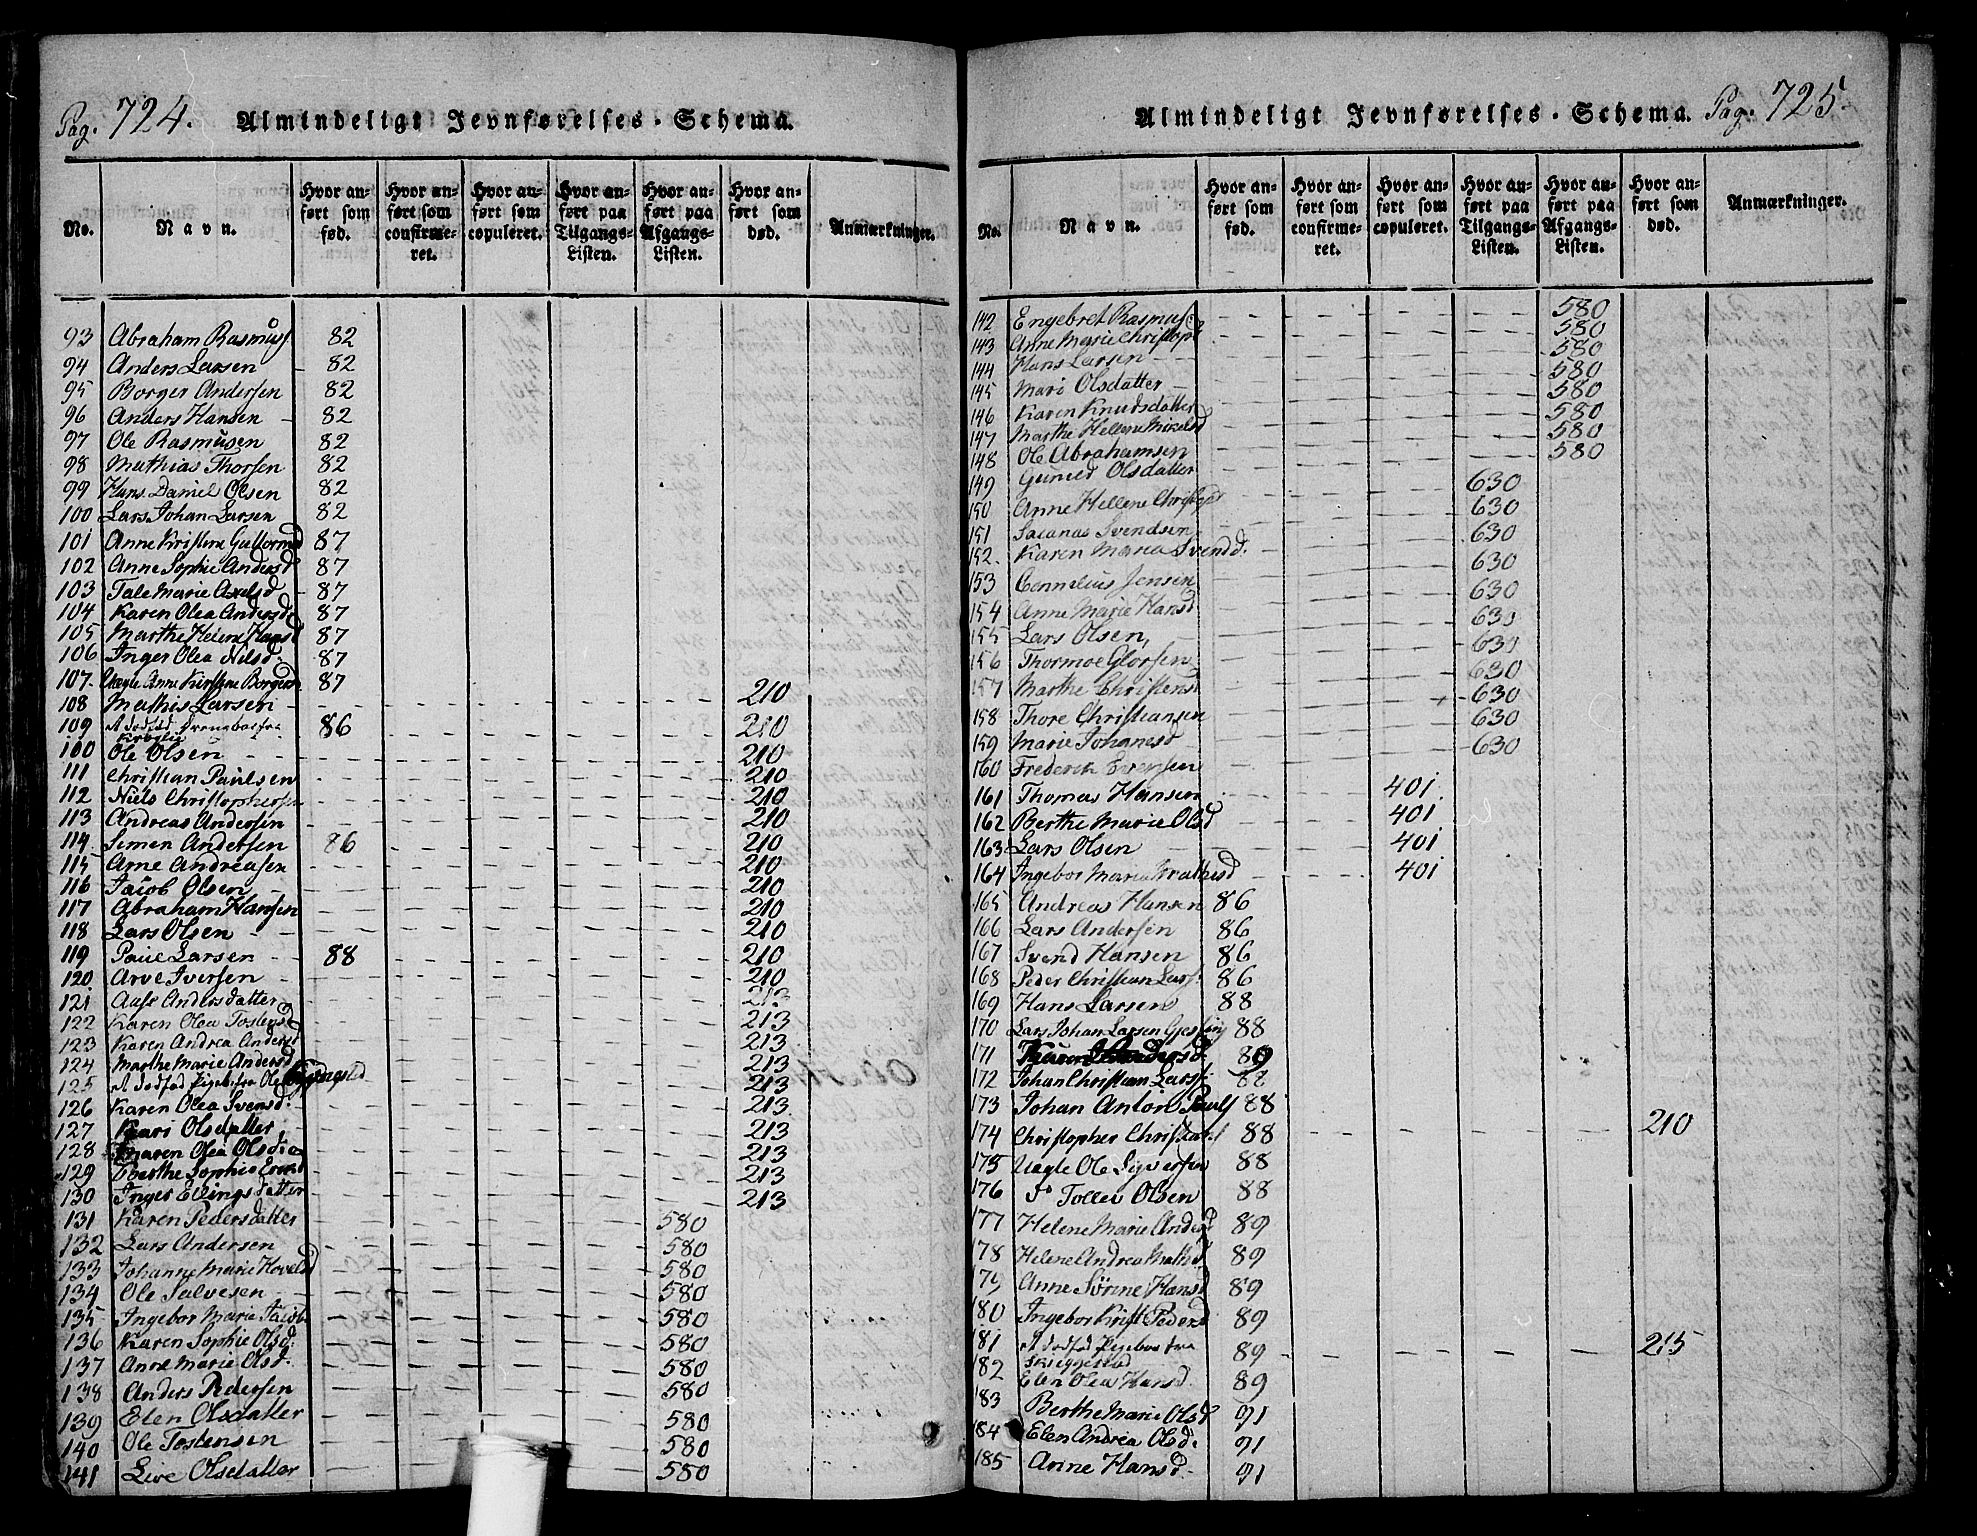 Pag. 724. Almindeligt Jevnførelses-Schema.
No. Navn. Hvor anført som fød. Hvor anført som confirmeret. Hvor anført som copuleret. Hvor anført paa Tilgangs-Listen. Hvor anført paa Afgangs-Listen. Hvor anført som død. Anmærkninger.
93 Abraham Rasmusf 82
94 Anders Larsen 82
95 Borger Andersen 82
96 Anders Hansen 82
97 Ole Rasmusen 82
98 Mathias Thorsen 82
99 Hans Daniel Olsen 82
100 Lars Johan Larsen 82
101 Anne Kristene Guttormd 87
102 Anne Sophie Andersd 87
103 Tale Marie Axelsd 87
104 Karen Olea Andersd 87
105 Marthe Helene Hansd 87
106 Inger Olea Nilsd. 87
107 Uægte Anne Kirstene Borgers 87
108 Mathis Larsen 210
109 et dødfød Drengebarn fra 86 210
100 Ole Olsen 210
111 Christian Paulsen 210
112 Niels Christophersen 210
113 Andreas Andersen 210
114 Simen Andersen 86 210
115 Arne Andreasen 210
116 Jacob Olsen 210
117 Abraham Hansen 210
118 Lars Olsen 210
119 Paul Larsen 88 210
120 Arve Iversen 210
121 Aase Andersdatter 213
122 Karen Olea Tostensd 213
123 Karen Andrea Andersd 213
124 Marthe Marie Andersd 213
125 et dødfød Pigeb. fra Ole 213
126 Karen Olea Svensd. 213
127 Kaari Olsdatter 213
128 Maren Olea Olsd 213
129 Berthe Sophie 213
130 Inger Ellingsdatter 213
131 Karen Pedersdatter 580
132 Lars Andersen 580
133 Johanne Marie Hovelsd 580
134 Ole Salvesen 580
135 Ingebor Marie Jacobs 580
136 Karen Sophie Olsd: 580
137 Anne Marie Olsd. 580
138 Anders Pedersen 580
139 Elen Olsdatter 580
140 Ole Tostensen 580
141 Live Olsdatter 580
Almindeligt Jevnførelses-Schema. Pag. 725.
No. Navn. Hvor anført som fød. Hvor anført som confirmeret. Hvor anført som copuleret. Hvor anført paa Tilgangs-Listen. Hvor anført paa Afgangs-Listen. Hvor anført som død. Anmærkninger.
142 Engebret Rasmusf: 580
143 Anne Marie Christopd 580
144 Hans Larsen 580
145 Mari Olsdatter 580
146 Karen Knudsdatter 580
147 Marthe Hellene Mikelsd 580
148 Ole Abrahamsen 580
149 Guneld Olsdatter 580
150 Anne Hellene 630
151 Svendsen 630
152. Karen Maria Svendd. 630
153 Cornelius Jensen 630
154 Anne Marie Hansd 630
155 Lars Olsen 630
156 Thormoe Glorsen 630
157 Marthe Christensd 630
158 Thore Christiansen 630
159 Marie Johanesd 630
160 Frederik Evensen 630
161 Thomas Hansen 401
162 Berthe Marie Olsd 401
163 Lars Olsen 401
164 Ingebor Maria Mathisd 401
165 Andreas Hansen 86
166 Lars Andersen 86
167 Svend Hansen 86
168 Peder Christian Larsf. 86
169 Hans Larsen 88
170 Lars Johan Larsen 88
171 89
172 Johan Christian Larsf. 88
173 Johan Anton Paulf 88
174 Christopher Christians 88 210
175 Uegte Ole Syversen 88
176 Tollev Olsen 88
177 Helene Marie Andersd 89
178 Helene Andrea Mathisd 89
179 Anne Sørine Hansd 89
180 Ingebor Kirst Pedersd 89
181 et dødfød Pigebarn fra 89 215
182 Elen Olea Hansd. 89
183 Berthe Marie Olsd 91
184 Elen Andrea Olsd. 91
185 Anne Hansd 91